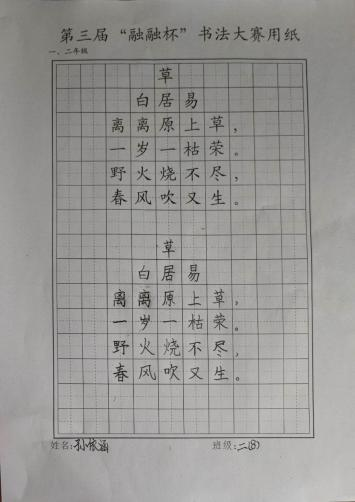 第三届“融融杯”书法大赛用纸
一、二年级
草
白居易
离离原上草，
一岁一枯荣。
野火烧不尽，
春风吹又生。
草
白居易
离离原上草，
一岁一枯荣。
野火烧不尽，
春风吹又生。
姓名：孙依涵 班级：二(8)